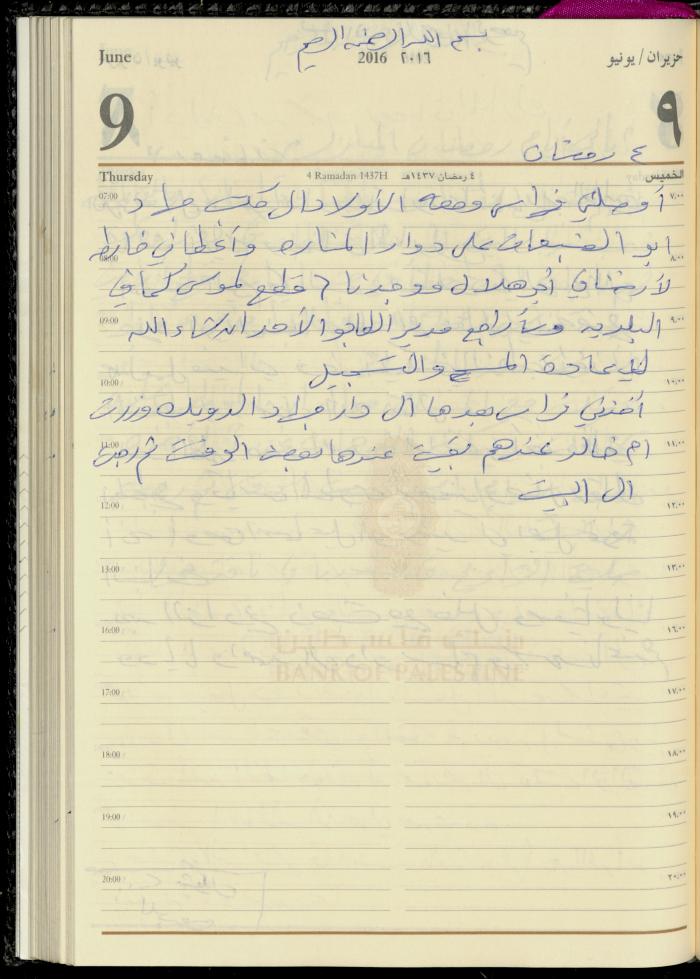 بسم الله الرحمن الرحيم
June 2016 ٢٠١٦ حزيران / يونيو
9 ٩
٤ رمضان
Thursday 4 Ramadan 1437H ٤ رمضان ١٤٣٧هـ الخميس
07:00 ٧:٠٠
أوصلني فراس ومعه الأولاد ال مكتب جراد
ابو الضبعات على دوار المناره وأعطاني خارطه
08:00 ٨:٠٠
لأرضناي أبو هلال ووجدنا ٦ قطع لموسى
09:00 ٩:٠٠
البلديه وسأراجع مدير الطابو الأحد ان شاء الله
لإعادة المسح والتسجيل
10:00 ١٠:٠٠
أخذني فراس بعدها ال دار الدويك وزرت
11:00 ١١:٠٠
ام خالد عندهم بقيت عندها بعض الوقت ثم رجعت
ال البيت
12:00 ١٢:٠٠
13:00 ١٣:٠٠
16:00 ١٦:٠٠
بنك فلسطين
BANK OF PALESTINE
17:00 ١٧:٠٠
18:00 ١٨:٠٠
19:00 ١٩:٠٠
20:00 ٢٠:٠٠